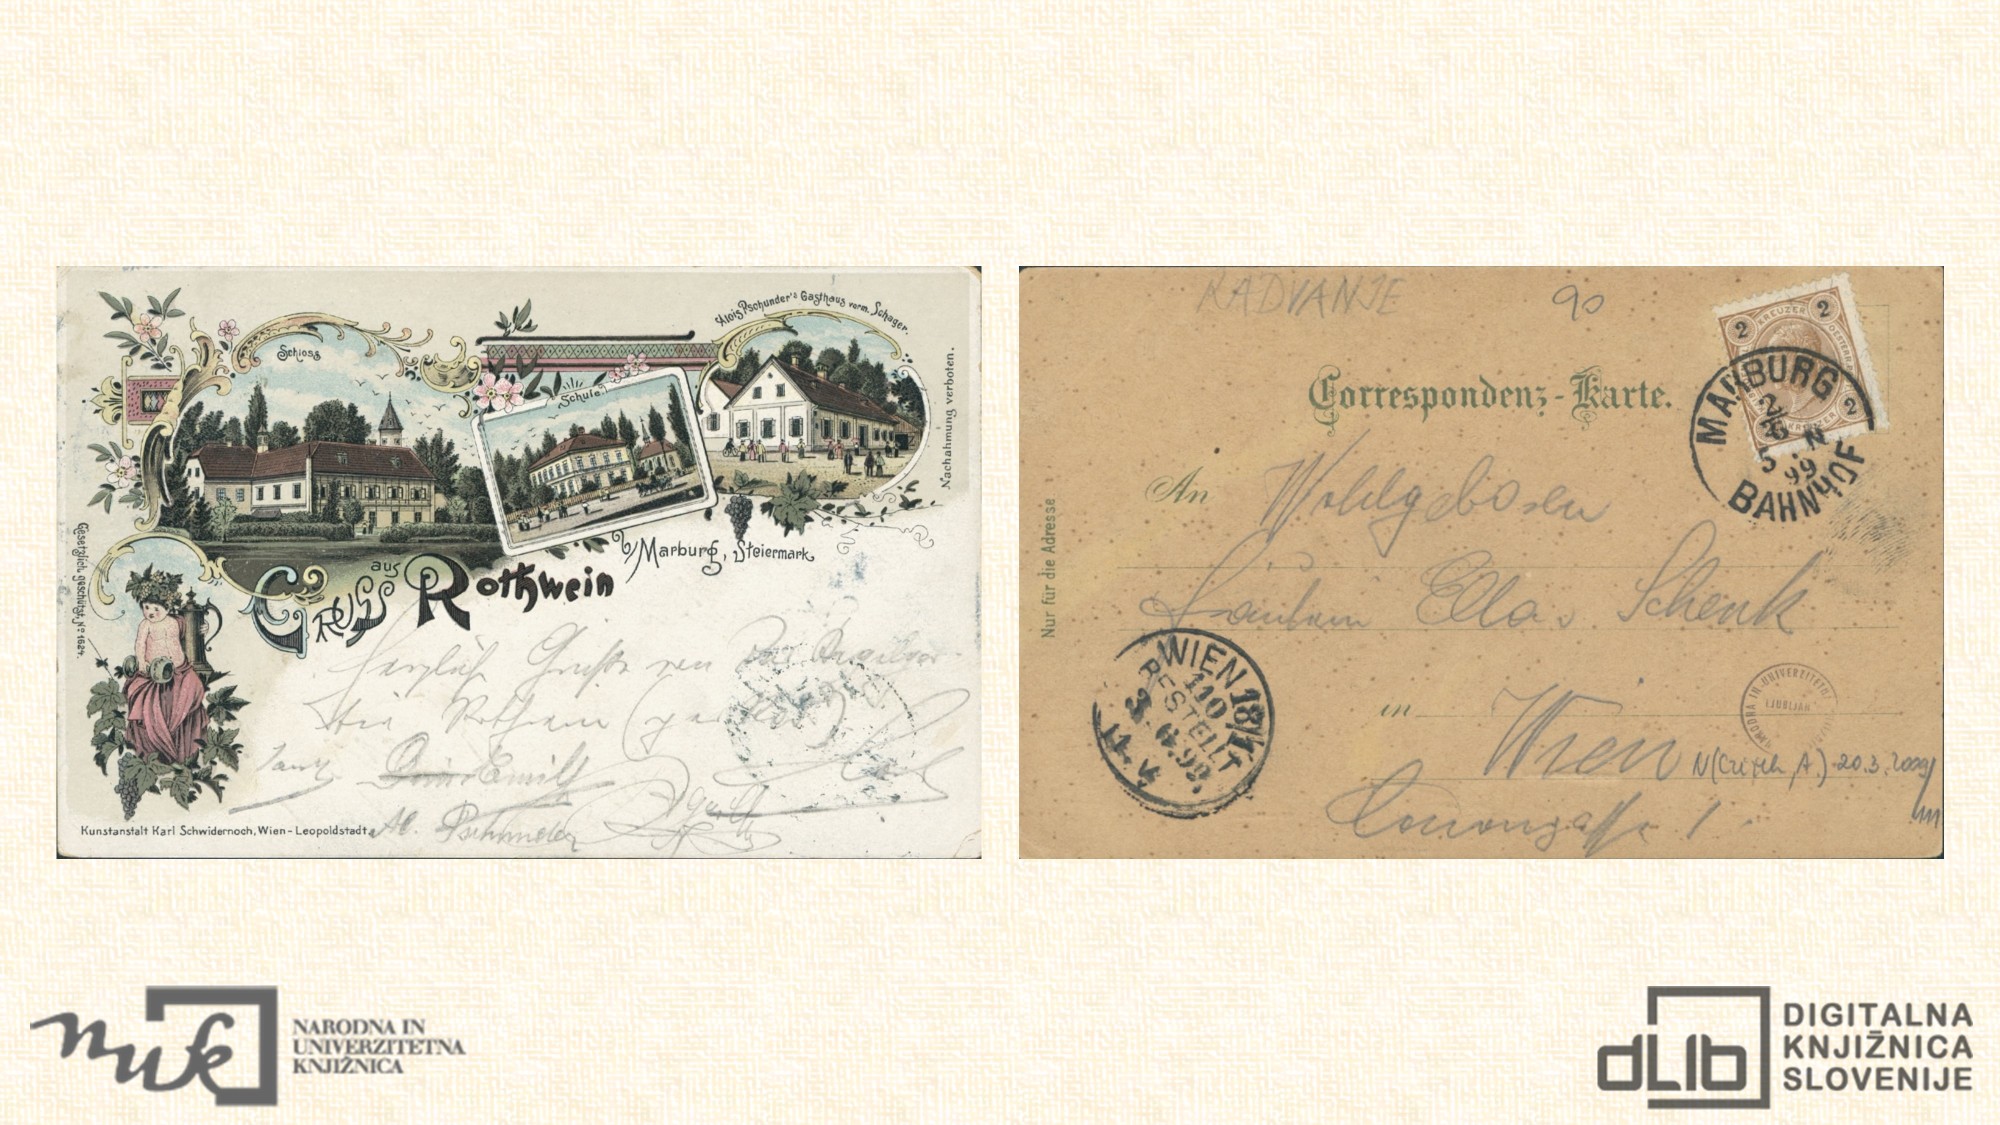 Schloss
Schule.
Alois Pschunder's Gasthaus vorm. Schager.
Nachahmung verboten.
Gesetzlich geschützt, No 1624.
Gruss aus Rothwein
b/Marburg, Steiermark.
Herzlich Grüße von
Emilk
Al. Pschunder
Kunstanstalt Karl Schwidernoch, Wien-Leopoldstadt.
RADVANJE
90
2 KREUZER 2
2
MARBURG
2/6
5 N
99
BAHNHOF
Correspondenz-Karte.
An Wohlgeboren
Nur für die Adresse
Fräulein Ella Schenk
WIEN 18/1
110
BESTELLT
3.6.99
in Wien
NARODNA IN UNIVERZITETNA
LJUBLJANA
N(Czitek, A.) 20.3.2009/
1
nuk
NARODNA IN
UNIVERZITETNA
KNJIŽNICA
dLib
DIGITALNA
KNJIŽNICA
SLOVENIJE